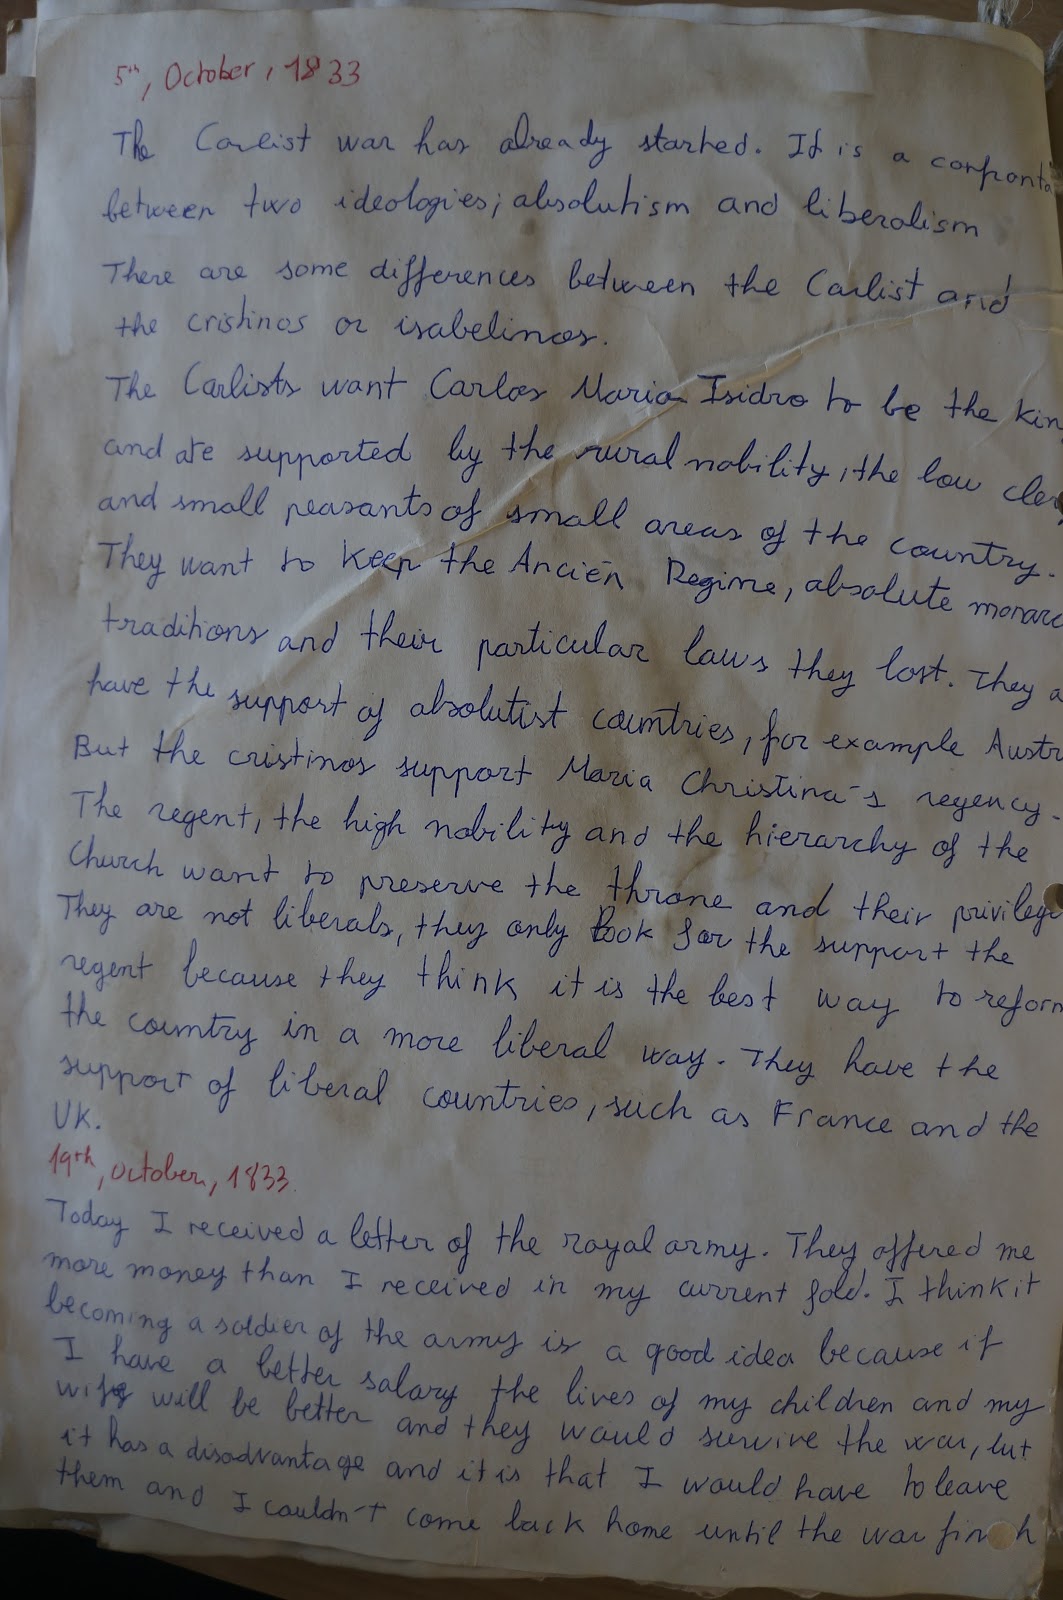 5th, October, 1833
The Carlist war has already started. It is a confronta
between two ideologies; absolutism and liberalism
There are some differences between the Carlist and
the cristinos or isabelinos.
The Carlists want Carlos Maria Isidro to be the kin
and are supported by the rural nobility, the low cler
and small peasants of small areas of the country.
They want to keep the Ancién Regime, absolute monarc
traditions and their particular laws they lost. They a
have the support of absolutist countries, for example Austr
But the cristinos support Maria Christina's regency.
The regent, the high nobility and the hierarchy of the
Church want to preserve the throne and their privilege
They are not liberals, they only look for the support the
regent because they think it is the best way to reform
the country in a more liberal way. They have the
support of liberal countries, such as France and the
UK.
19th, october, 1833.
Today I received a letter of the royal army. They offered me
more money than I received in my current job. I think it
becoming a soldier of the army is a good idea because if
I have a better salary the lives of my children and my
wife will be better and they would survive the war, but
it has a disadvantage and it is that I would have to leave
them and I couldn't come back home until the war finish